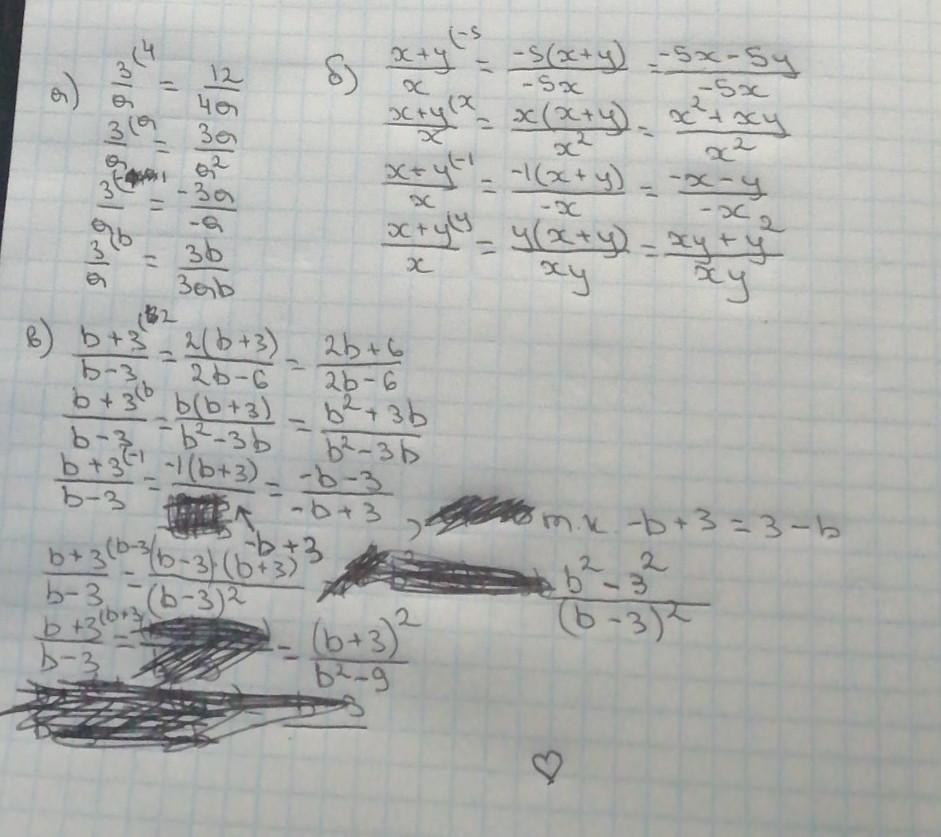 а) 3/a (4 = 12/4a
3/a (a = 3a/a²
3/a (-1 = -3a/-a
3/a (b = 3b/3ab
б) x+y/x (-5 = -5(x+y)/-5x = -5x-5y/-5x
x+y/x (x = x(x+y)/x² = x²+xy/x²
x+y/x (-1 = -1(x+y)/-x = -x-y/-x
x+y/x (y = y(x+y)/xy = xy+y²/xy
в) b+3/b-3 (2 = 2(b+3)/2b-6 = 2b+6/2b-6
b+3/b-3 (b = b(b+3)/b²-3b = b²+3b/b²-3b
b+3/b-3 (-1 = -1(b+3)/-b+3 = -b-3/-b+3 , т.к -b+3=3-b
b+3/b-3 (b-3 = (b-3)·(b+3)/(b-3)² b²-3²/(b-3)²
b+3/b-3 (b+3 = = (b+3)²/b²-9